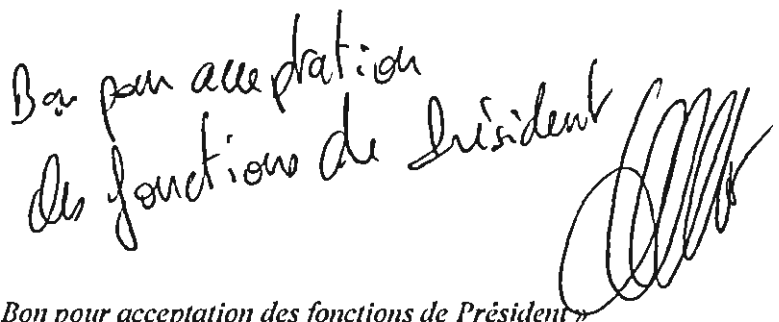 Bon pour acceptation
des fonctions de Président
Bon pour acceptation des fonctions de Président »